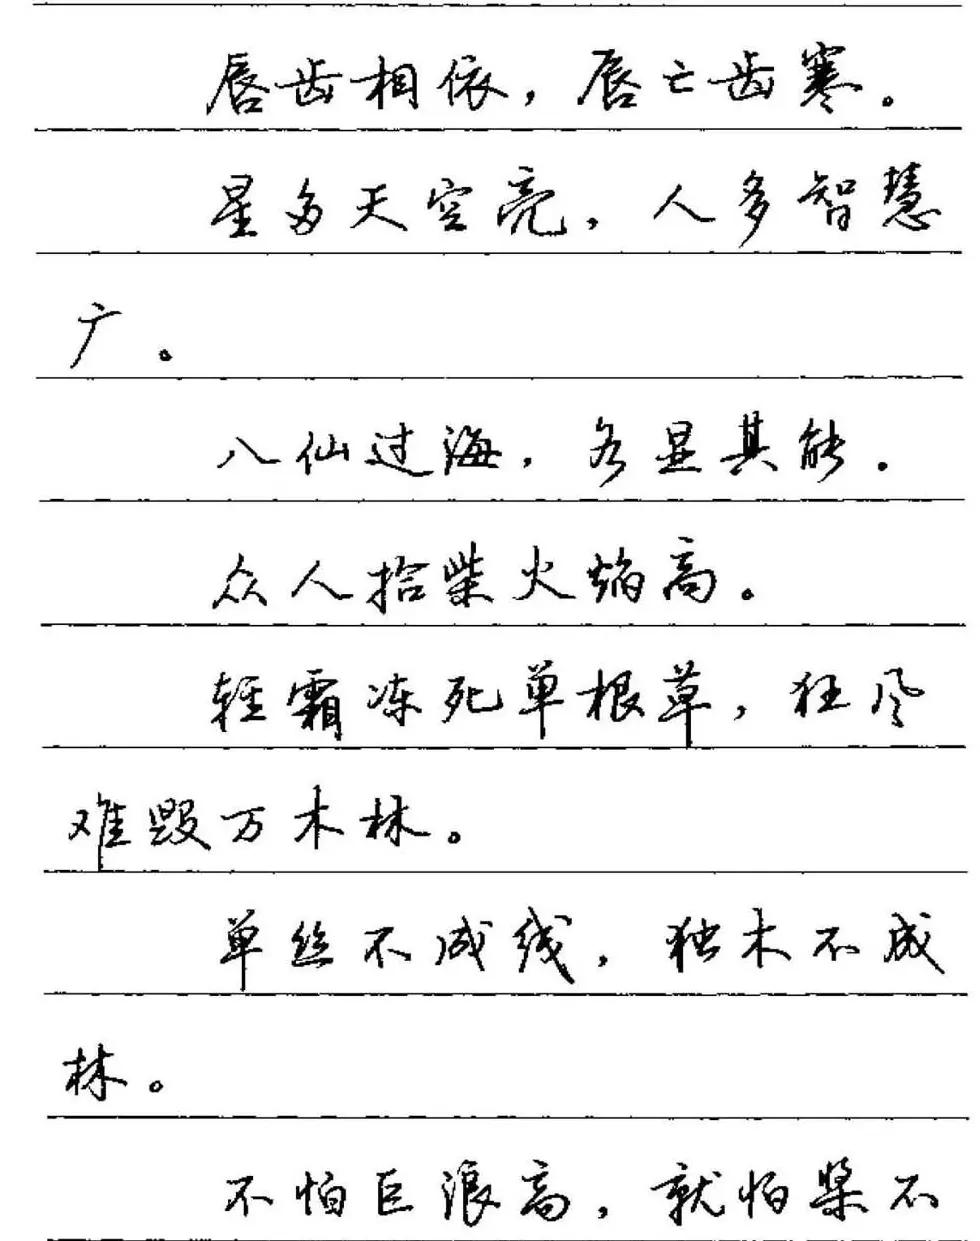 唇齿相依，唇亡齿寒。
星多天空亮，人多智慧
广。
八仙过海，各显其能。
众人拾柴火焰高。
轻霜冻死单根草，狂风
难毁万木林。
单丝不成线，独木不成
林。
不怕巨浪高，就怕桨不